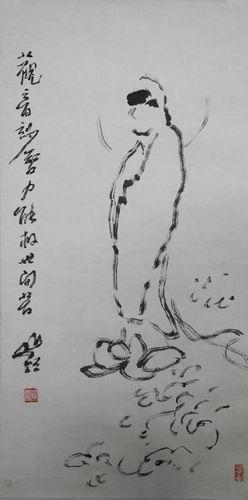 觀音妙智力能救世間苦